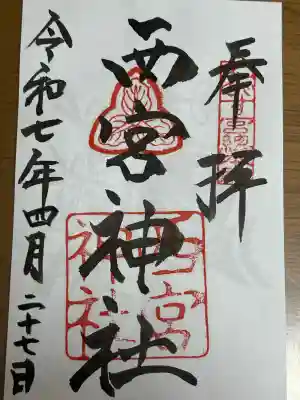 奉拝
西宮神社
西宮
神社
令和七年四月二十七日